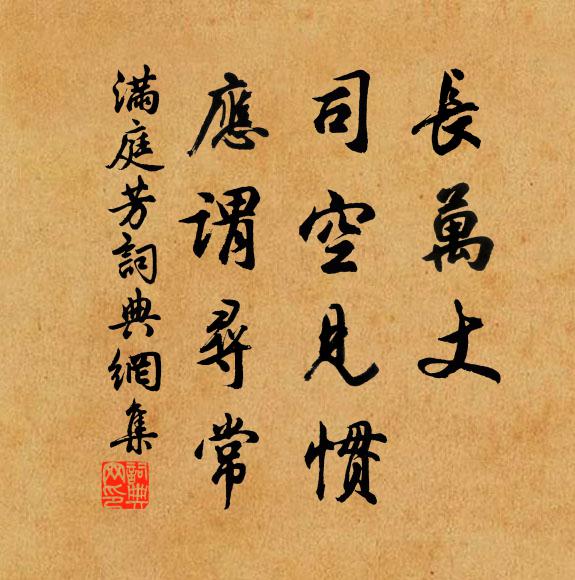 長萬丈
司空見慣
應謂尋常
滿庭芳詞典網集
詞典網印